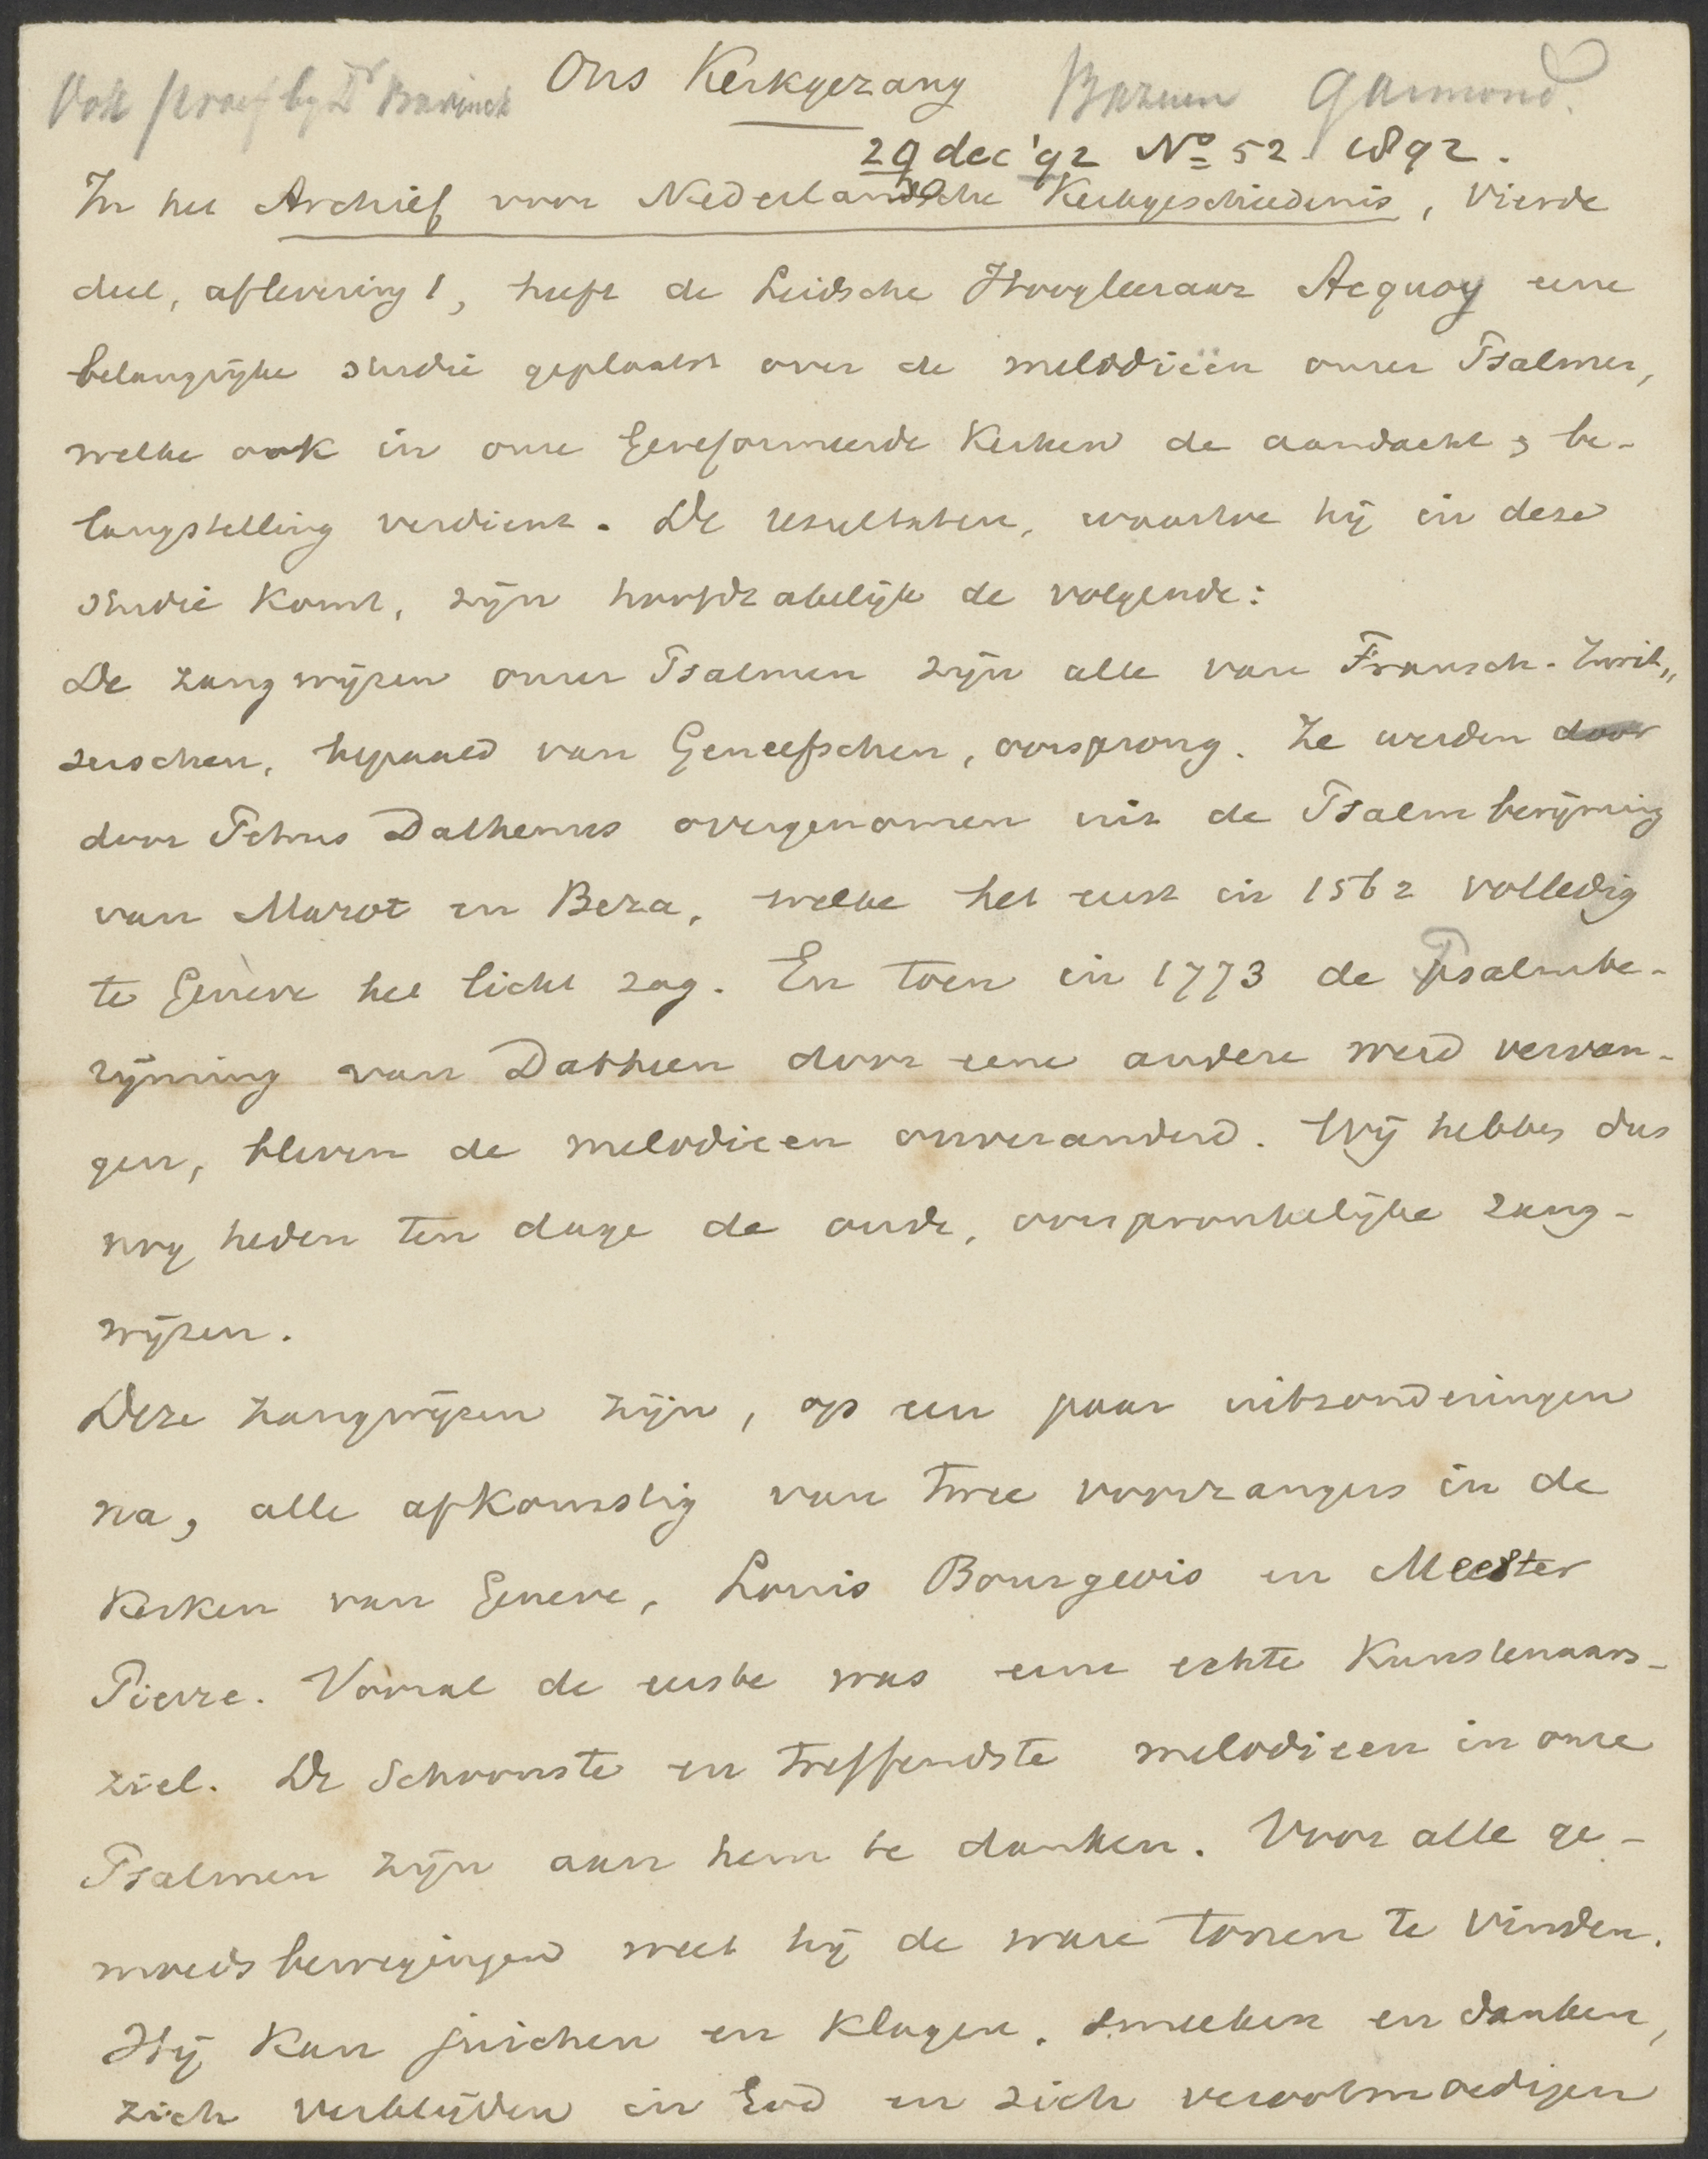 Ons Kerkgezang
by Dr Bavinck
Bazuin Garmond.
29 dec '92 No 52. 1892.
In het Archief voor Nederlandsche Kerkgeschiedenis, Vierde
deel, aflevering 1, heeft de Leidsche Hoogleeraar Acquoy eene
belangrijke studie geplaatst over de melodieën onzer Psalmen,
welke ook in onze Gereformeerde Kerken de aandacht & be-
langstelling verdient. De resultaten, waartoe hij in deze
studie komt, zijn hoofdzakelijk de volgende:
De zangwijzen onzer Psalmen zijn alle van Fransch-Zwit„
serschen, bepaald van Geneefschen, oorsprong. Ze werden door
door Petrus Dathenus overgenomen uit de Psalmberijming
van Marot en Beza, welke het eerst in 1562 volledig
te Genève het licht zag. En toen in 1773 de Psalmbe-
rijming van Datheen door eene andere werd vervan-
gen, bleven de melodieen onveranderd. Wij hebben dus
nog heden ten dage de oude, oorspronkelijke zang-
wijzen.
Deze zangwijzen zijn, op een paar uitzonderingen
na, alle afkomstig van twee voorzangers in de
Kerken van Geneve, Louis Bourgeois en Meester
Pierre. Vooral de eerste was eene echte Kunstenaars-
ziel. De Schoonste en treffendste melodieen in onze
Psalmen zijn aan hem te danken. Voor alle ge-
moedsbewegingen weet hij de ware toonen te vinden.
Hij kan juichen en klagen, smeeken en danken,
zich verblijden in God en zich verootmoedigen